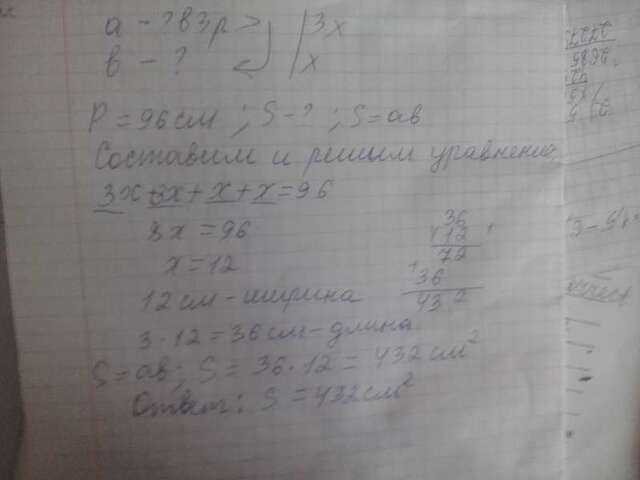 а - ? в 3р > | 3х
в - ? | х
Р = 96 см ; S - ? ; S = ав
Составим и решим уравнение
3х+3х+х+х=96
8х = 96
х = 12
12 см - ширина
3 · 12 = 36 см - длина
S = ав ; S = 36 · 12 = 432 см²
Ответ : S = 432 см²
36
х 12
72
+ 36
432